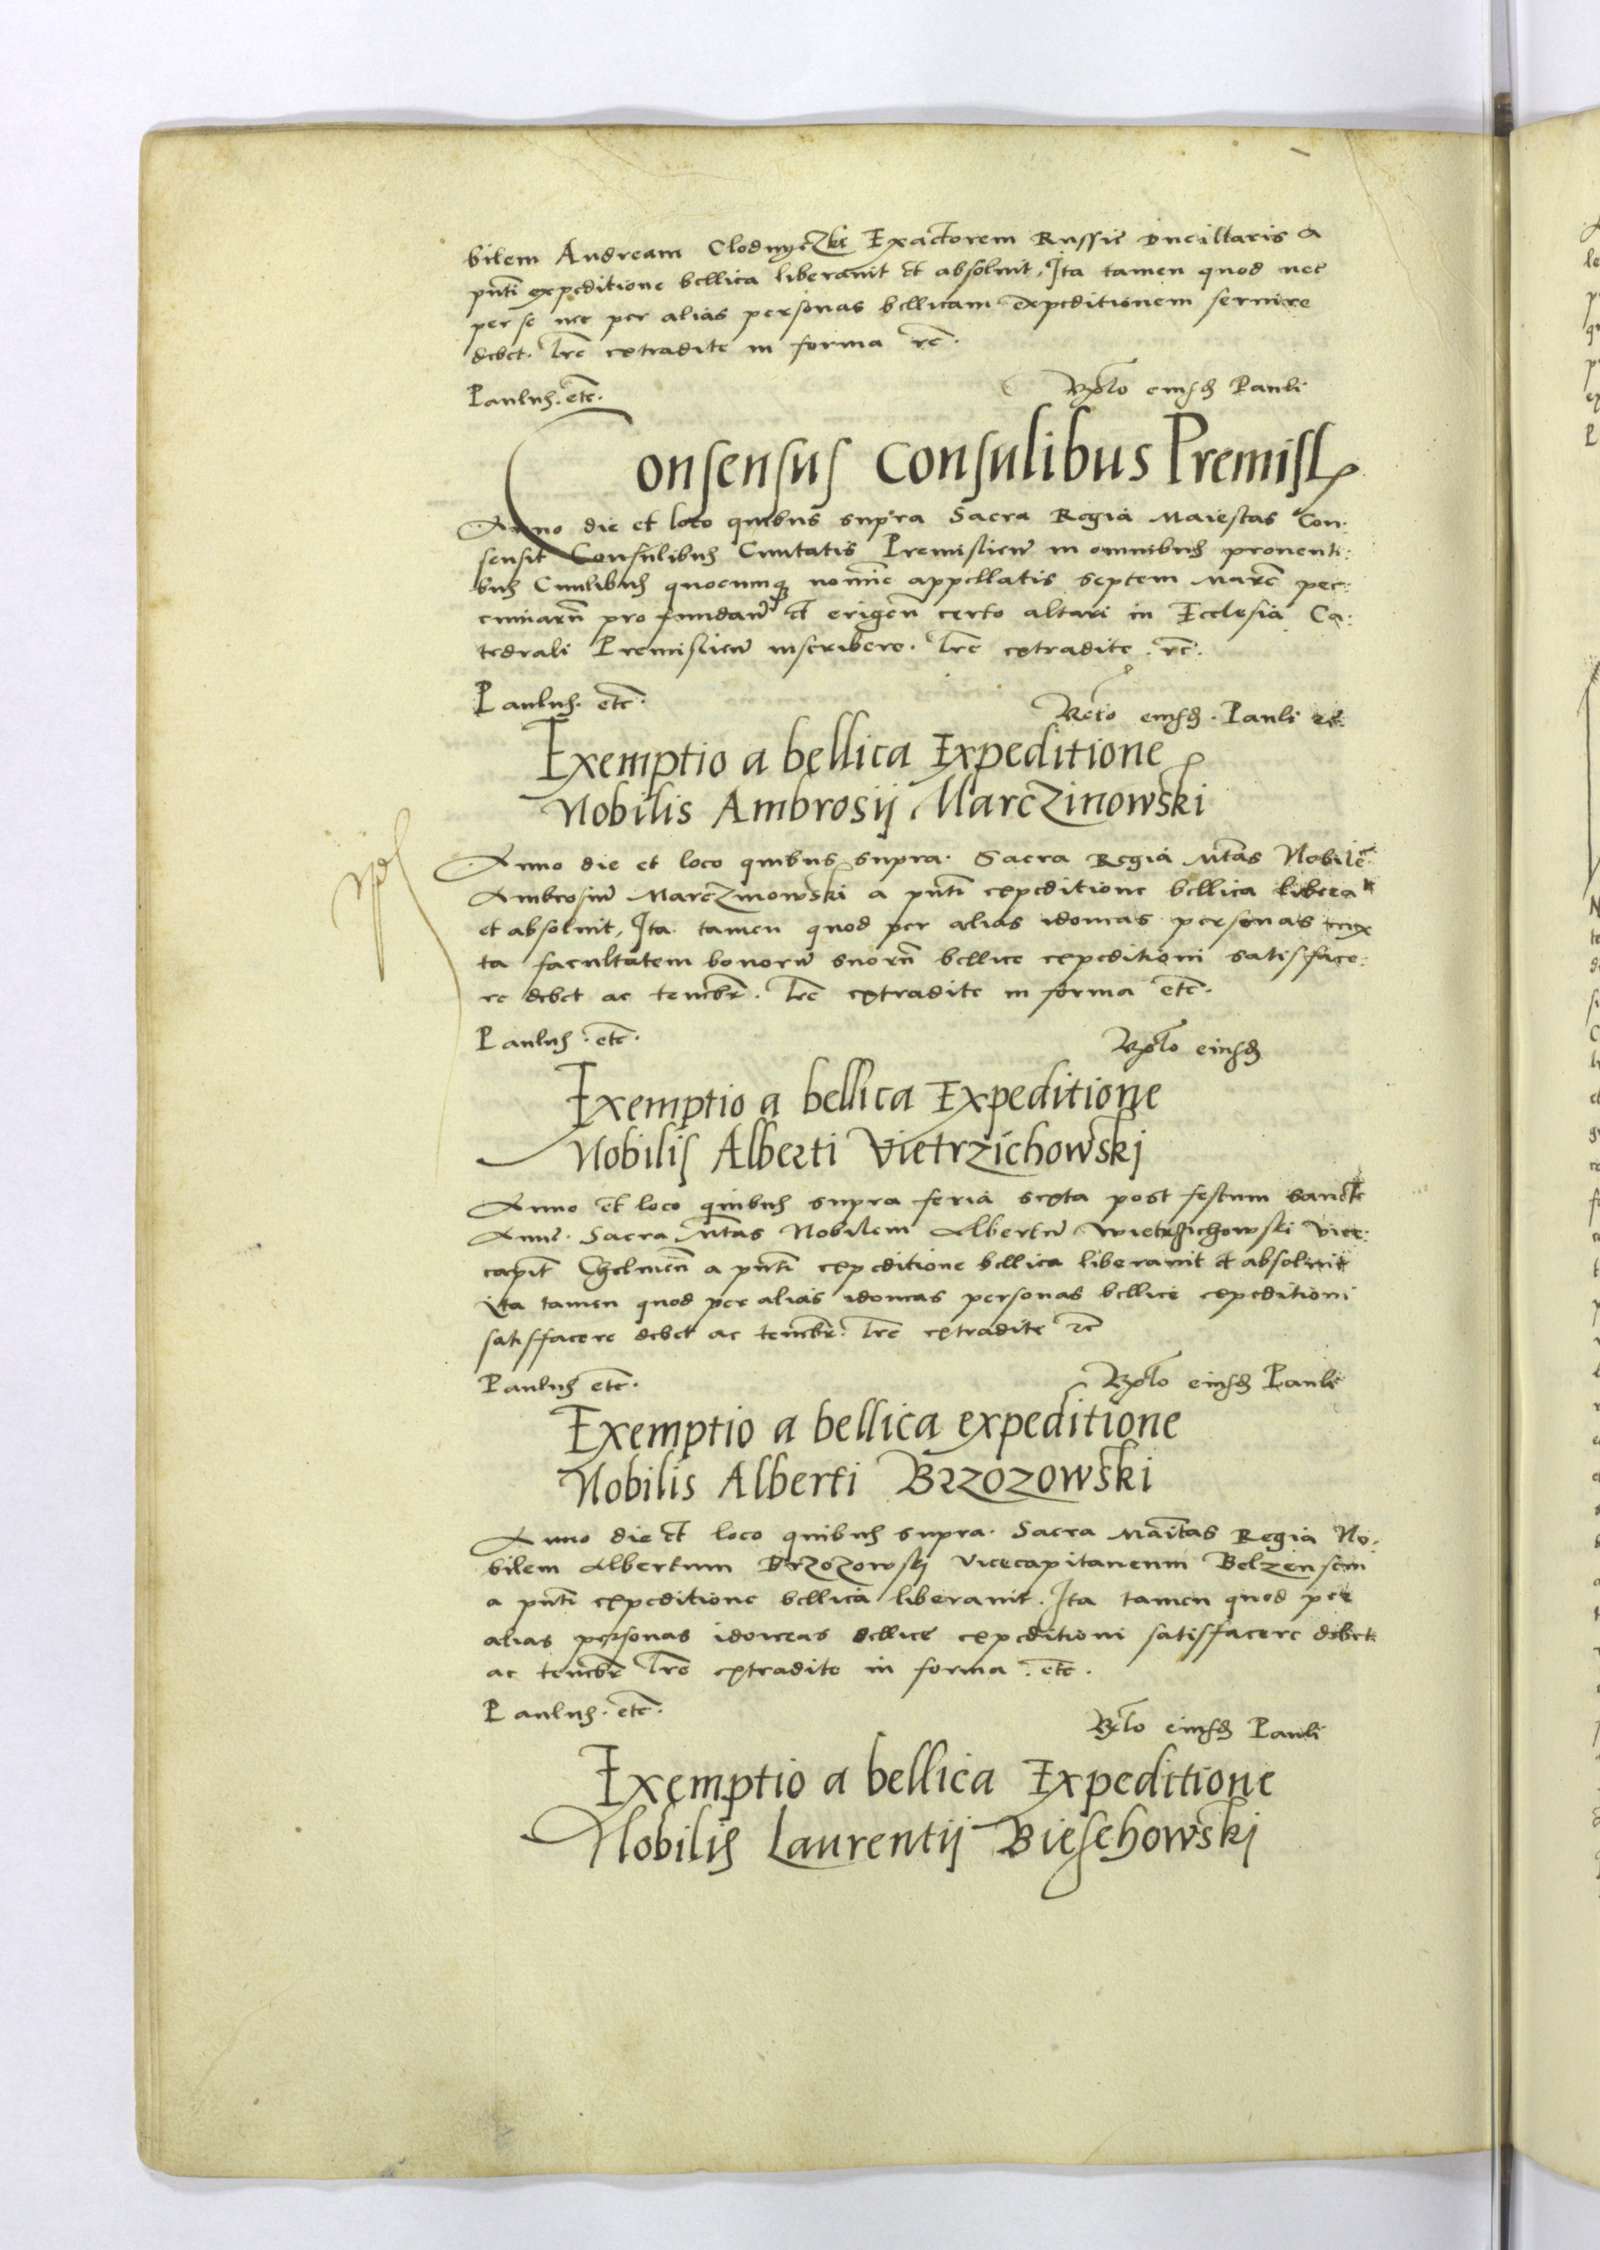 bilem Andream Clodnyczki Exactorem Russie Ducillaris a
pnti expeditione bellica liberauit et absoluit, Ita tamen quod nec
per se nec per alias personas bellicam expeditionem seruire
debet. Lre extradite in forma etc.
Paulus. etc. Relo eiusdem Pauli
Consensus Consulibus Premisl
Anno die et loco quibus supra Sacra Regia Maiestas Con:
sensit Consulibus Ciuitatis Premislien in omnibus prouenti:
bus Ciuilibus quocumque nomine appellatis septem Marc pec:
cuniarum pro fundan et erigen certo altari in Ecclesia Ca:
tedrali Premislien inscribere. Lre extradite. etc.
Paulus. etc. Relo eiusdem. Pauli etc.
Exemptio a bellica Expeditione
Nobilis Ambrosij Marczinowski
Anno die et loco quibus supra. Sacra Regia Mtas Nobile
Ambrosiu Marczinowski a pnti expeditione bellica libera
et absoluit, Ita tamen quod per alias idoneas personas iux
ta facultatem bonoru suoru bellice expeditioni satisface:
re debet ac tenebr. Lre extradite in forma etc.
Paulus. etc. Relo eiusdem
Exemptio a bellica Expeditione
Nobilis Alberti Vietrzichowskj
Anno et loco quibus supra feria sexta post festum Sancte
Anne. Sacra Mtas Nobilem Albertu Wietrzichowski Vice:
capit Chelmen a pnti expeditione bellica liberauit et absoluit
Ita tamen quod per alias idoneas personas bellice expeditioni
satisfacere debet ac tenebr. Lre extradite etc
Paulus etc. Relo eiusdem Pauli
Exemptio a bellica expeditione
Nobilis Alberti Brzozowski
Anno die et loco quibus supra. Sacra Maitas Regia No:
bilem Albertum Brzozowskj Vicecapitaneum Belzensem
a pnti expeditione bellica liberauit. Ita tamen quod per
alias personas idoneas bellice expeditioni satisfacere debet
ac tenebr Lre extradite in forma. etc.
Paulus. etc. Relo eiusdem Pauli
Exemptio a bellica Expeditione
Nobilis Laurentij Bieschowskj